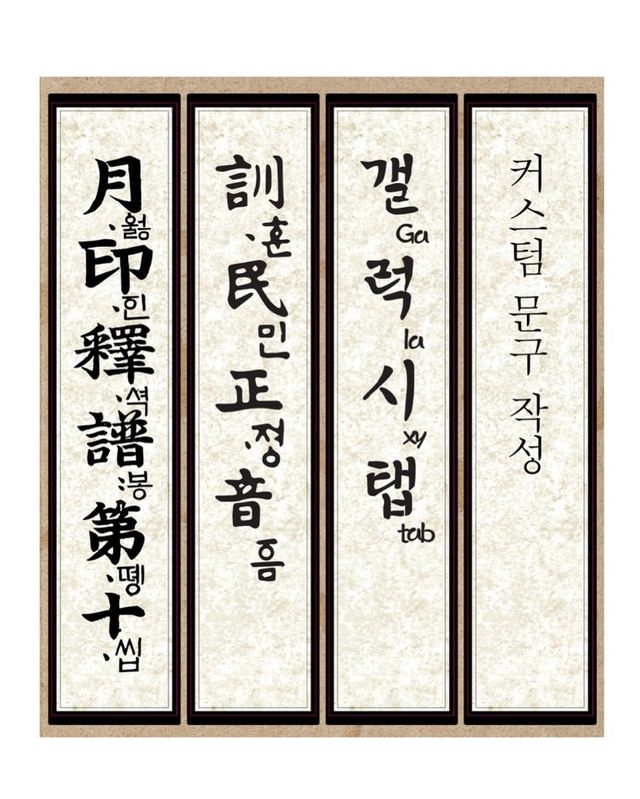 月·ᅌᅯᇙ印·ᅙᅵᆫ釋·셕譜:봉第·뗑十·씹
訓·훈民민正·정音ᅙᅳᆷ
갤Ga럭la시xy탭tab
커스텀 문구 작성